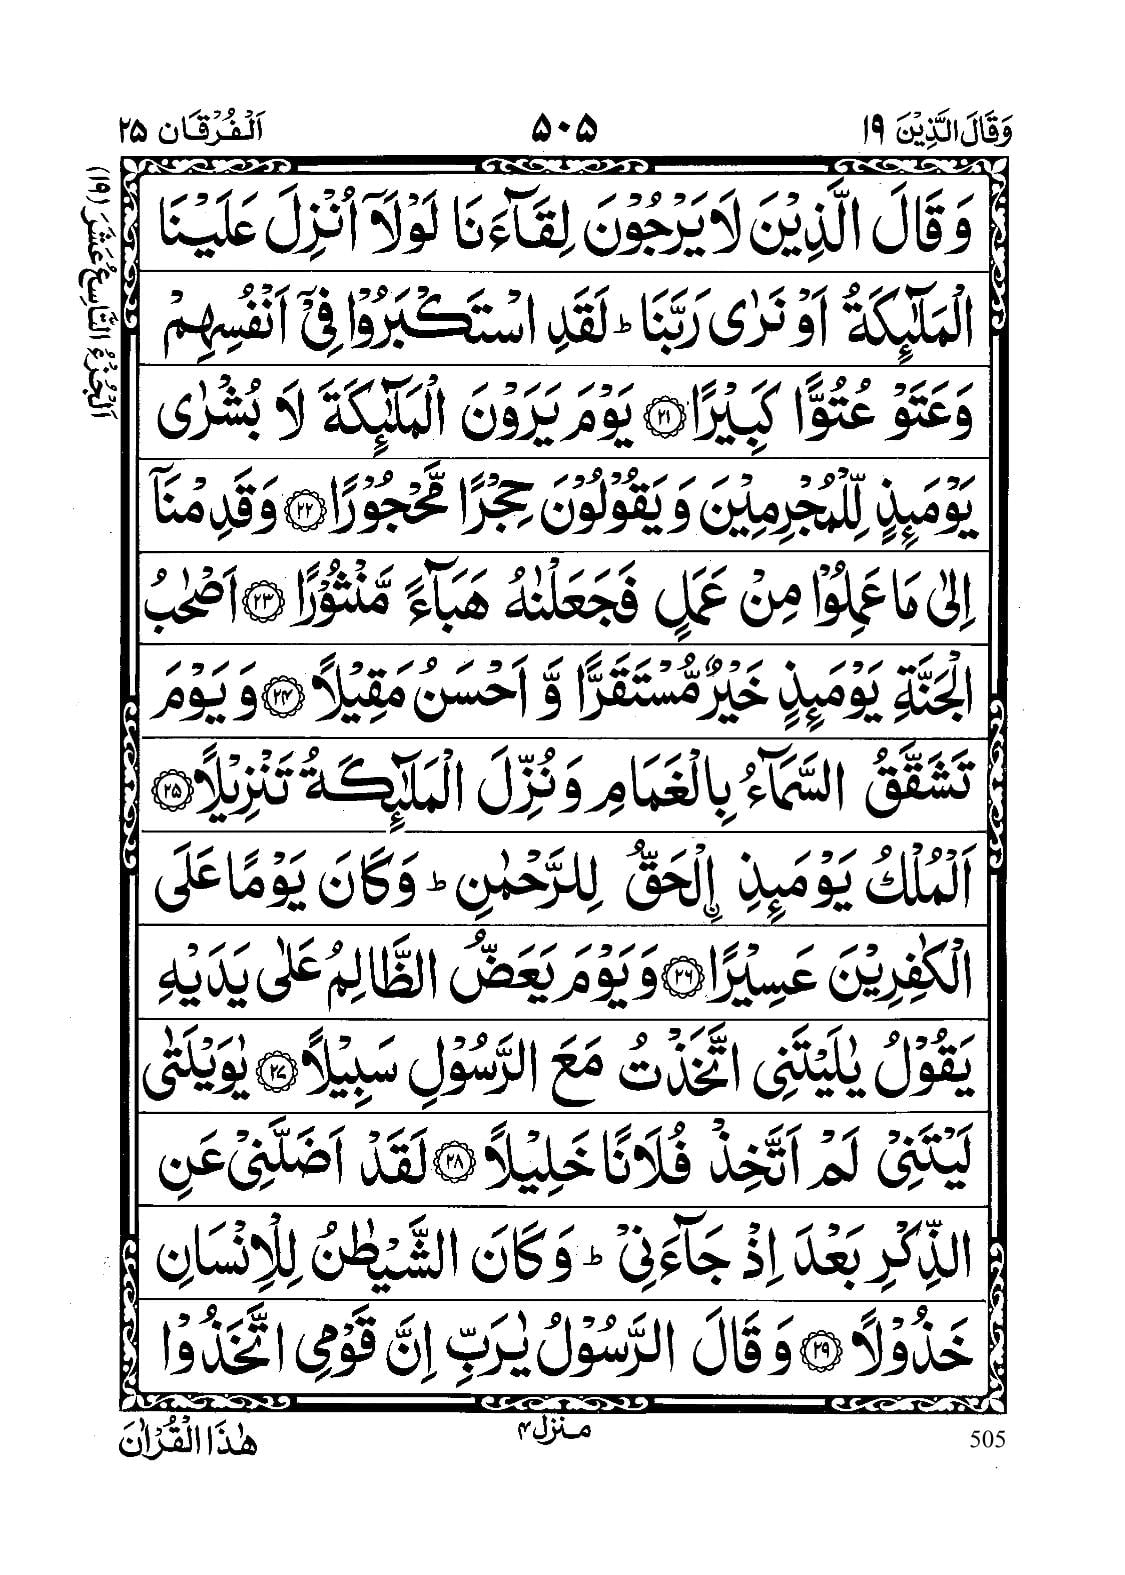 وَقَالَ الَّذِيْنَ ١٩
۵۰۵
اَلْفُرْقَان ۲۵
اَلْجُزْءُ التَّاسِعُ عَشَرَ (١٩)
وَ قَالَ الَّذِيْنَ لَا يَرْجُوْنَ لِقَآءَنَا لَوْلَاۤ اُنْزِلَ عَلَيْنَا
الْمَلٰٓئِكَةُ اَوْ نَرٰى رَبَّنَا ؕ لَقَدِ اسْتَكْبَرُوْا فِىْۤ اَنْفُسِهِمْ
وَ عَتَوْ عُتُوًّا كَبِيْرًا ﴿۲۱﴾ يَوْمَ يَرَوْنَ الْمَلٰٓئِكَةَ لَا بُشْرٰى
يَوْمَئِذٍ لِّلْمُجْرِمِيْنَ وَ يَقُوْلُوْنَ حِجْرًا مَّحْجُوْرًا ﴿۲۲﴾ وَ قَدِمْنَاۤ
اِلٰى مَا عَمِلُوْا مِنْ عَمَلٍ فَجَعَلْنٰهُ هَبَآءً مَّنْثُوْرًا ﴿۲۳﴾ اَصْحٰبُ
الْجَنَّةِ يَوْمَئِذٍ خَيْرٌ مُّسْتَقَرًّا وَّ اَحْسَنُ مَقِيْلًا ﴿۲۴﴾ وَ يَوْمَ
تَشَقَّقُ السَّمَآءُ بِالْغَمَامِ وَ نُزِّلَ الْمَلٰٓئِكَةُ تَنْزِيْلًا ﴿۲۵﴾
اَلْمُلْكُ يَوْمَئِذِ ۟الْحَقُّ لِلرَّحْمٰنِ ؕ وَ كَانَ يَوْمًا عَلَى
الْكٰفِرِيْنَ عَسِيْرًا ﴿۲۶﴾ وَ يَوْمَ يَعَضُّ الظَّالِمُ عَلٰى يَدَيْهِ
يَقُوْلُ يٰلَيْتَنِى اتَّخَذْتُ مَعَ الرَّسُوْلِ سَبِيْلًا ﴿۲۷﴾ يٰوَيْلَتٰى
لَيْتَنِىْ لَمْ اَتَّخِذْ فُلَانًا خَلِيْلًا ﴿۲۸﴾ لَقَدْ اَضَلَّنِىْ عَنِ
الذِّكْرِ بَعْدَ اِذْ جَآءَنِىْ ؕ وَ كَانَ الشَّيْطٰنُ لِلْاِنْسَانِ
خَذُوْلًا ﴿۲۹﴾ وَ قَالَ الرَّسُوْلُ يٰرَبِّ اِنَّ قَوْمِى اتَّخَذُوْا
505
منزل ۴
هٰذَا الْقُرْاٰنَ